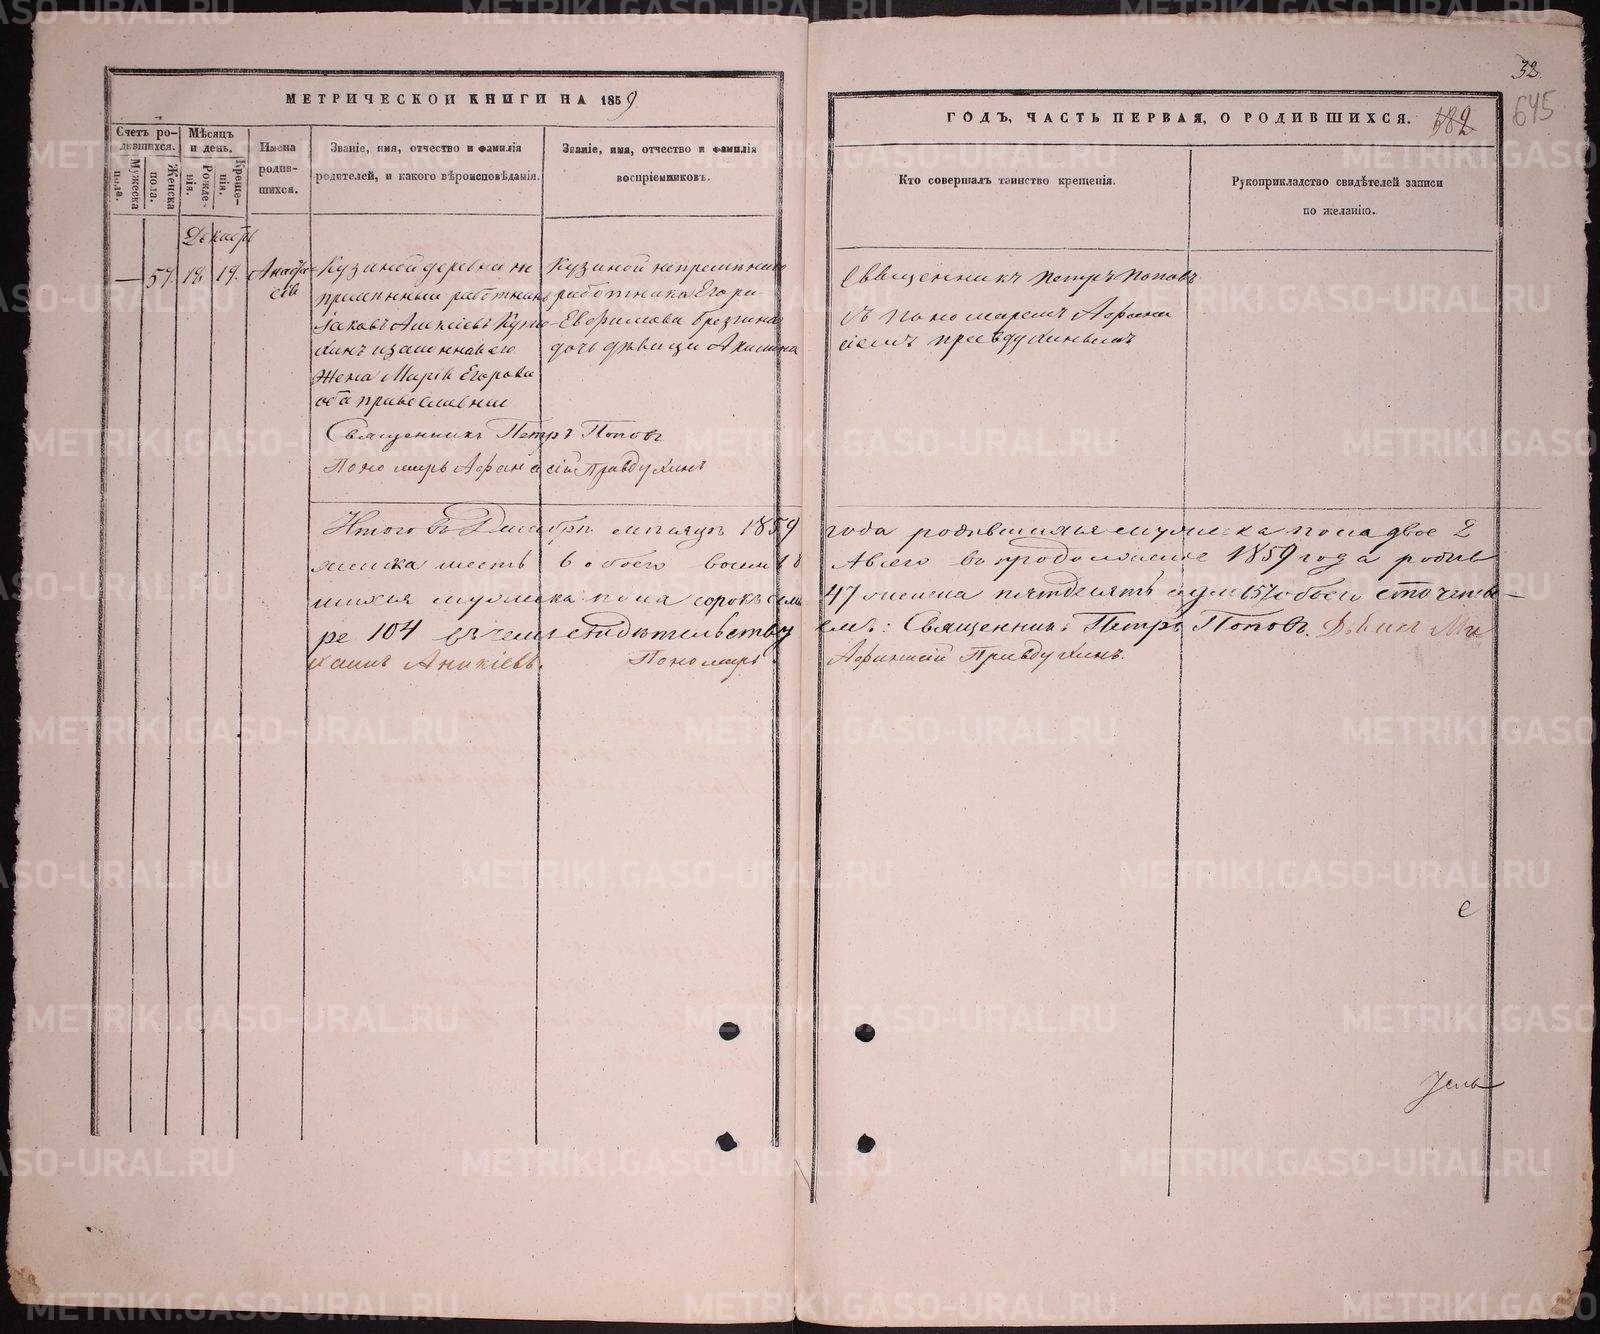 32.
645
МЕТРИЧЕСКОЙ КНИГИ НА 1859
ГОДЪ, ЧАСТЬ ПЕРВАЯ, О РОДИВШИХСЯ.
182
Счетъ ро-
дившихся.
Мужеска
пола.
Женска
пола.
Мѣсяцъ
и день.
Рожде-
нія.
Креще-
нія.
Имена
родив-
шихся.
Званіе, имя, отчество и фамилія
родителей, и какого вѣроисповѣданія.
Званіе, имя, отчество и фамилія
воспріемниковъ.
Кто совершалъ таинство крещенія.
Рукоприкладство свидѣтелей записи
по желанію.
Декабрь
— 57. 18 19. Анаста-
сія
Кузиной деревни не
премѣнный работникъ
Іаковъ Алексіевъ
законная его
жена Марія Егорова
оба православные
Кузиной непремѣннаго
работника Егора
Евфимова
дочь дѣвица Акилина
Священникъ Петръ Поповъ
съ пономаремъ Афана
сіемъ Правдухинымъ
Священникъ Петръ Поповъ
Пономарь Афанасій Правдухинъ
Итого въ Декабрѣ мѣсяцѣ 1859 года родившихся мужеска пола двое 2
женска шесть 6 обоего восемь 8 А всего въ продолженіе 1859 года родив
шихся мужеска пола сорокъ семь 47 женска пятьдесятъ семь 57 обоего сто четы-
ре 104 въ чемъ свидѣтельству емъ: Священникъ Петръ Поповъ. Дьякъ Ми
хаилъ Аникіевъ. Пономарь Афанасій Правдухинъ.
METRIKI.GASO-URAL.RU